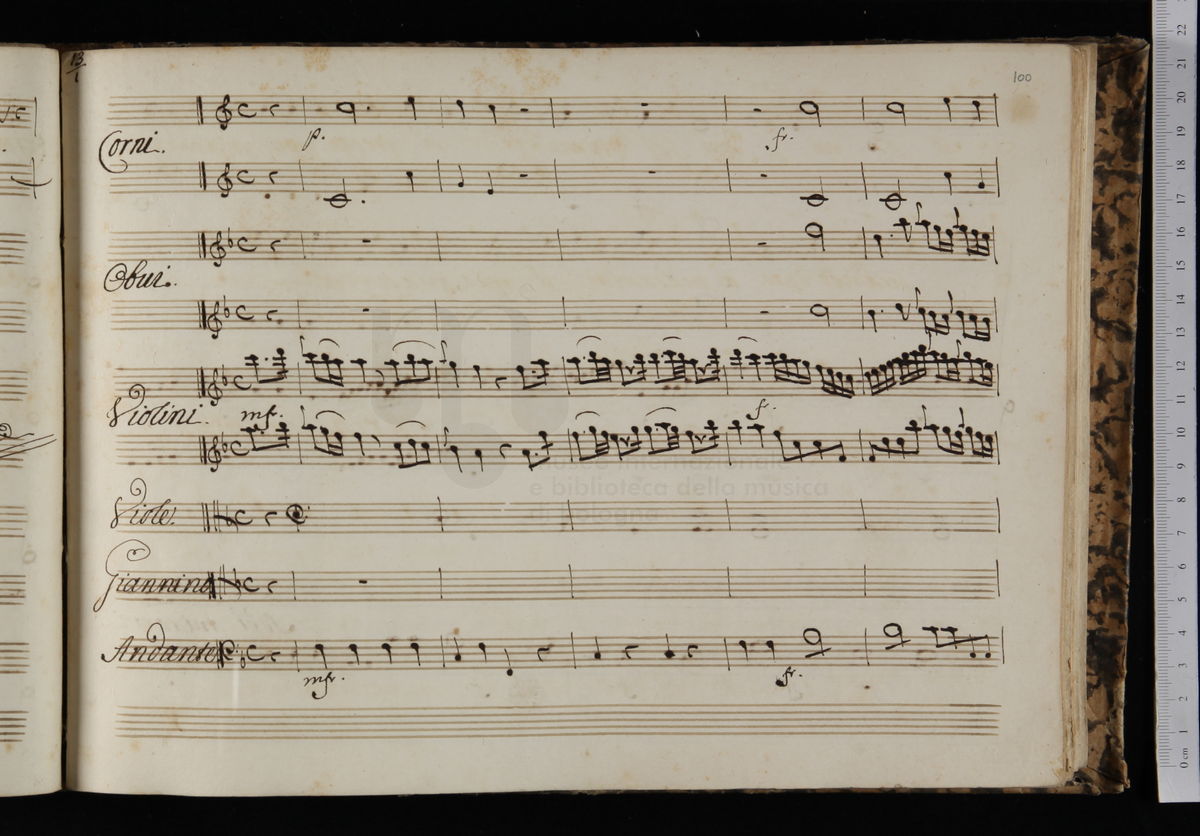 13
1
100
Corni.
p.
fr.
Obui.
Violini.
mf.
f.
Viole.
Giannina
Andante
mfr.
fr.
museo internazionale
e biblioteca della musica
0 cm 1 2 3 4 5 6 7 8 9 10 11 12 13 14 15 16 17 18 19 20 21 22